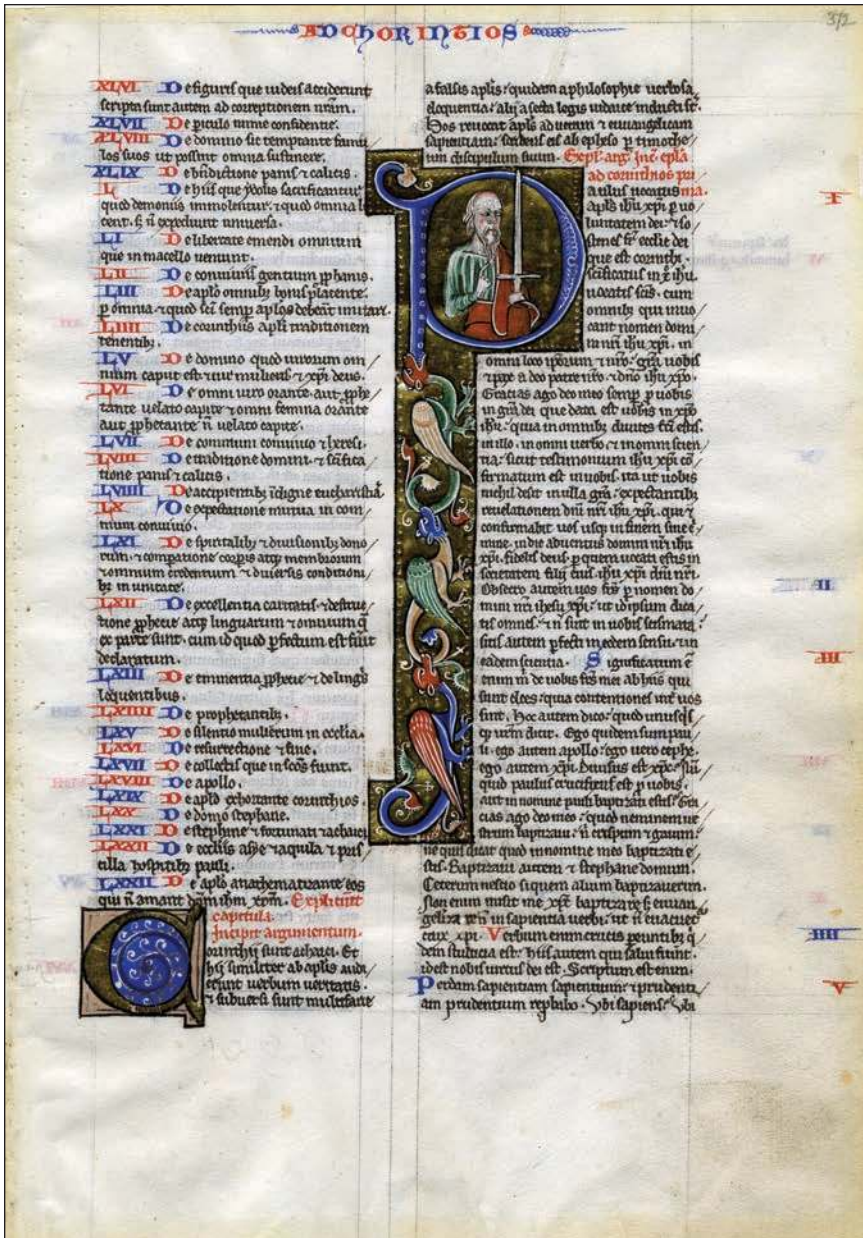 AD CHORINTIOS
372
XLVI De figuris que iudeis acciderunt
scripta sunt autem ad correptionem nr̃am.
XLVII De piculo nimie confidentie.
XLVIII De domino sic temptante famu
los suos ut possint omnia sustinere.
XLIX De bñdictione panis ⁊ calicis.
L De hiis que ydolis sacrificantur
quod demoniis immolentur. ⁊ quod omnia li
cent. s; ñ expediunt uniuersa.
LI De libertate emendi omnium
que in macello ueniunt.
LII De conuiuiis gentium pphanis.
LIII De apl̃o omnibꝫ bonis placente.
p omnia. ⁊ quod sei semp apl̃os debeãt imitari.
LIIII De corinthiis apl̃i traditionem
tenentibꝫ.
LV De domino quod uirorum om
nium caput est. ⁊ uir mulieris. ⁊ xp̃i deus.
LVI De omni uiro orante. aut pphe
tante uelato capite ⁊ omni femina orante
aut pphetante ñ uelato capite.
LVII De communi conuiuio ⁊ heresi.
LVIII De traditione domini. ⁊ scĩfica
tione panis ⁊ calicis.
LVIIII De accipientibꝫ idigne eucharistiã
LX De expectatione mutua in com
muni conuiuio.
LXI De spiritalibꝫ ⁊ diuisionibꝫ dono
rum. ⁊ compatione corpis atqꝫ membrorum
⁊ omnium credentium ⁊ diuersis conditioni
bꝫ in unitate.
LXII De excellentia caritatis. ⁊ destru
tione pphetie atqꝫ linguarum ⁊ omnium q̃
ex parte sunt. cum id quod pfectum est fũit
declaratum.
LXIII De eminentia pphetie ⁊ de lingis
loquentibus.
LXIIII De prophetantibꝫ.
LXV De silentio mulierum in ecclia.
LXVI De resurrectione ⁊ fine.
LXVII De collectis que in scõs fiunt.
LXVIII De apollo.
LXIX De apl̃o exhortante corinthios.
LXX De domo stephane.
LXXI De stephane ⁊ fortunati ⁊ achaici
LXXII De ecclis asye ⁊ aquila ⁊ pris
cilla hospitibꝫ pauli.
LXXII De apl̃o anathematizante eos
qui ñ amant dñm ihm̃ xpm̃. Expliciunt
capitula.
Incipit argumentum.
Corinthii sunt achaici. Et
hii similiter ab apl̃is audi
erunt uerbum ueritatis.
⁊ subuersi sunt multifarie
a falsis apl̃is. quidem a philosophie uerbosa
eloquentia. alii a secta legis iudaice inducti st̃.
Hos reuocat apl̃s ad ueram ⁊ euuangelicam
sapientiam. scribens eis ab epheso p timothe
um discipulum suum. Expl̃. arg̃. Inc̃. epl̃a
ad corinthios pri
ma.
Paulus uocatus
apl̃s ihu xp̃i p uo
luntatem dei. ⁊ so
stenes fr̃ ecclie dei
que est corinthi.
scĩficatis in xp̃o ihu.
uocatis scĩs. cum
omnibꝫ qui inuo
cant nomen domi
ni nr̃i ihu xp̃i. in
omni loco ipsorum ⁊ nr̃o. grã uobis
⁊ pax a deo patre nr̃o. ⁊ dño ihu xp̃o.
Gracias ago deo meo semp p uobis
in grã dei que data est uobis in xp̃o
ihu. quia in omnibꝫ diuites fc̃i estis.
in illo. in omni uerbo. ⁊ in omni scien
tia. sicut testimonium ihu xp̃i cõ
firmatum est in uobis. ita ut uobis
nichil desit in ulla grã. expectantibꝫ
reuelationem dñi nr̃i ihu xp̃i. qui ⁊
confirmabit uos usqꝫ in finem sine c̃
mine. in die aduentus domini nr̃i ihu
xp̃i. Fidelis deus. p quem uocati estis in
societatem filii eius. ihu xp̃i dñi nr̃i.
Obsecro autem uos fr̃s p nomen do
mini nr̃i ihesu xp̃i. ut idipsum dica
tis omnes. ⁊ ñ sint in uobis scismata.
sitis autem pfecti in eodem sensu. ⁊ in
eadem scientia. Significatum ẽ
enim m̃ de uobis fr̃s mei ab hiis qui
sunt cloes. quia contentiones int̃ uos
sunt. Hoc autem dico. quod unusqis
qꝫ ur̃m dicit. Ego quidem sum pau
li. ego autem apollo. ego uero cephe.
ego autem xp̃i. Diuisus est xp̃c. Nũ
quid paulus crucifixus est p uobis.
aut in nomine pauli baptizati estis. Gra
cias ago deo meo. quod neminem ue
strum baptizaui. ñ crispum ⁊ gaium.
ne quis dicat quod in nomine meo baptizati e
stis. Baptizaui autem ⁊ stephane domum.
Ceterum nescio si quem alium baptizauerim.
Non enim misit me xp̃c baptizare s; euuan
gelizare. ñ in sapientia uerbi. ut ñ euacuet̃
crux xp̃i. Verbum enim crucis peuntibꝫ q̃
dem stulticia est. Hiis autem qui salui fiunt.
id est nobis uirtus dei est. Scriptum est enim.
Perdam sapientiam sapientium. ⁊ prudenti
am prudentium repbabo. Vbi sapiens. Vbi
I
II
III
IIII
V